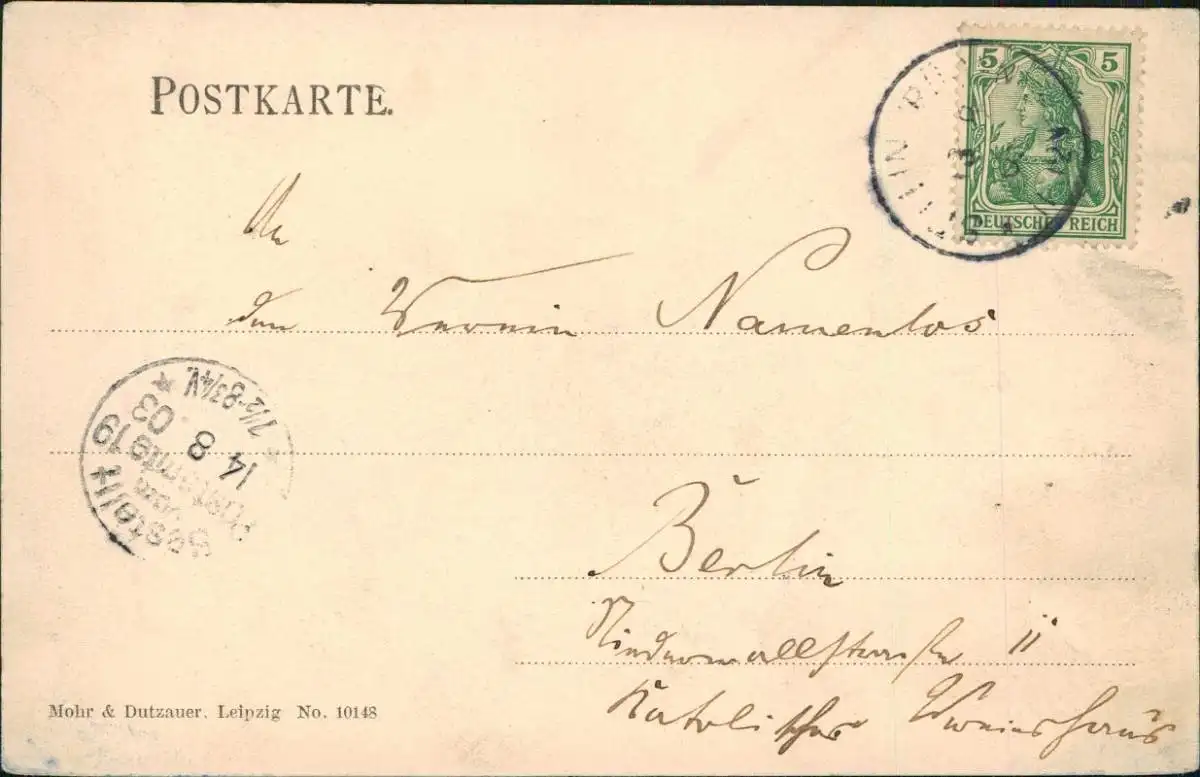 POSTKARTE.
5 5
DEUTSCHES REICH
An
den Verein Namenlos
Bestellt
vom
Postamte 19
14 8 03
7½-8¾V.
Berlin
Niederwallstraße 11
Katolisches Vereinshaus
Mohr & Dutzauer, Leipzig No. 10148